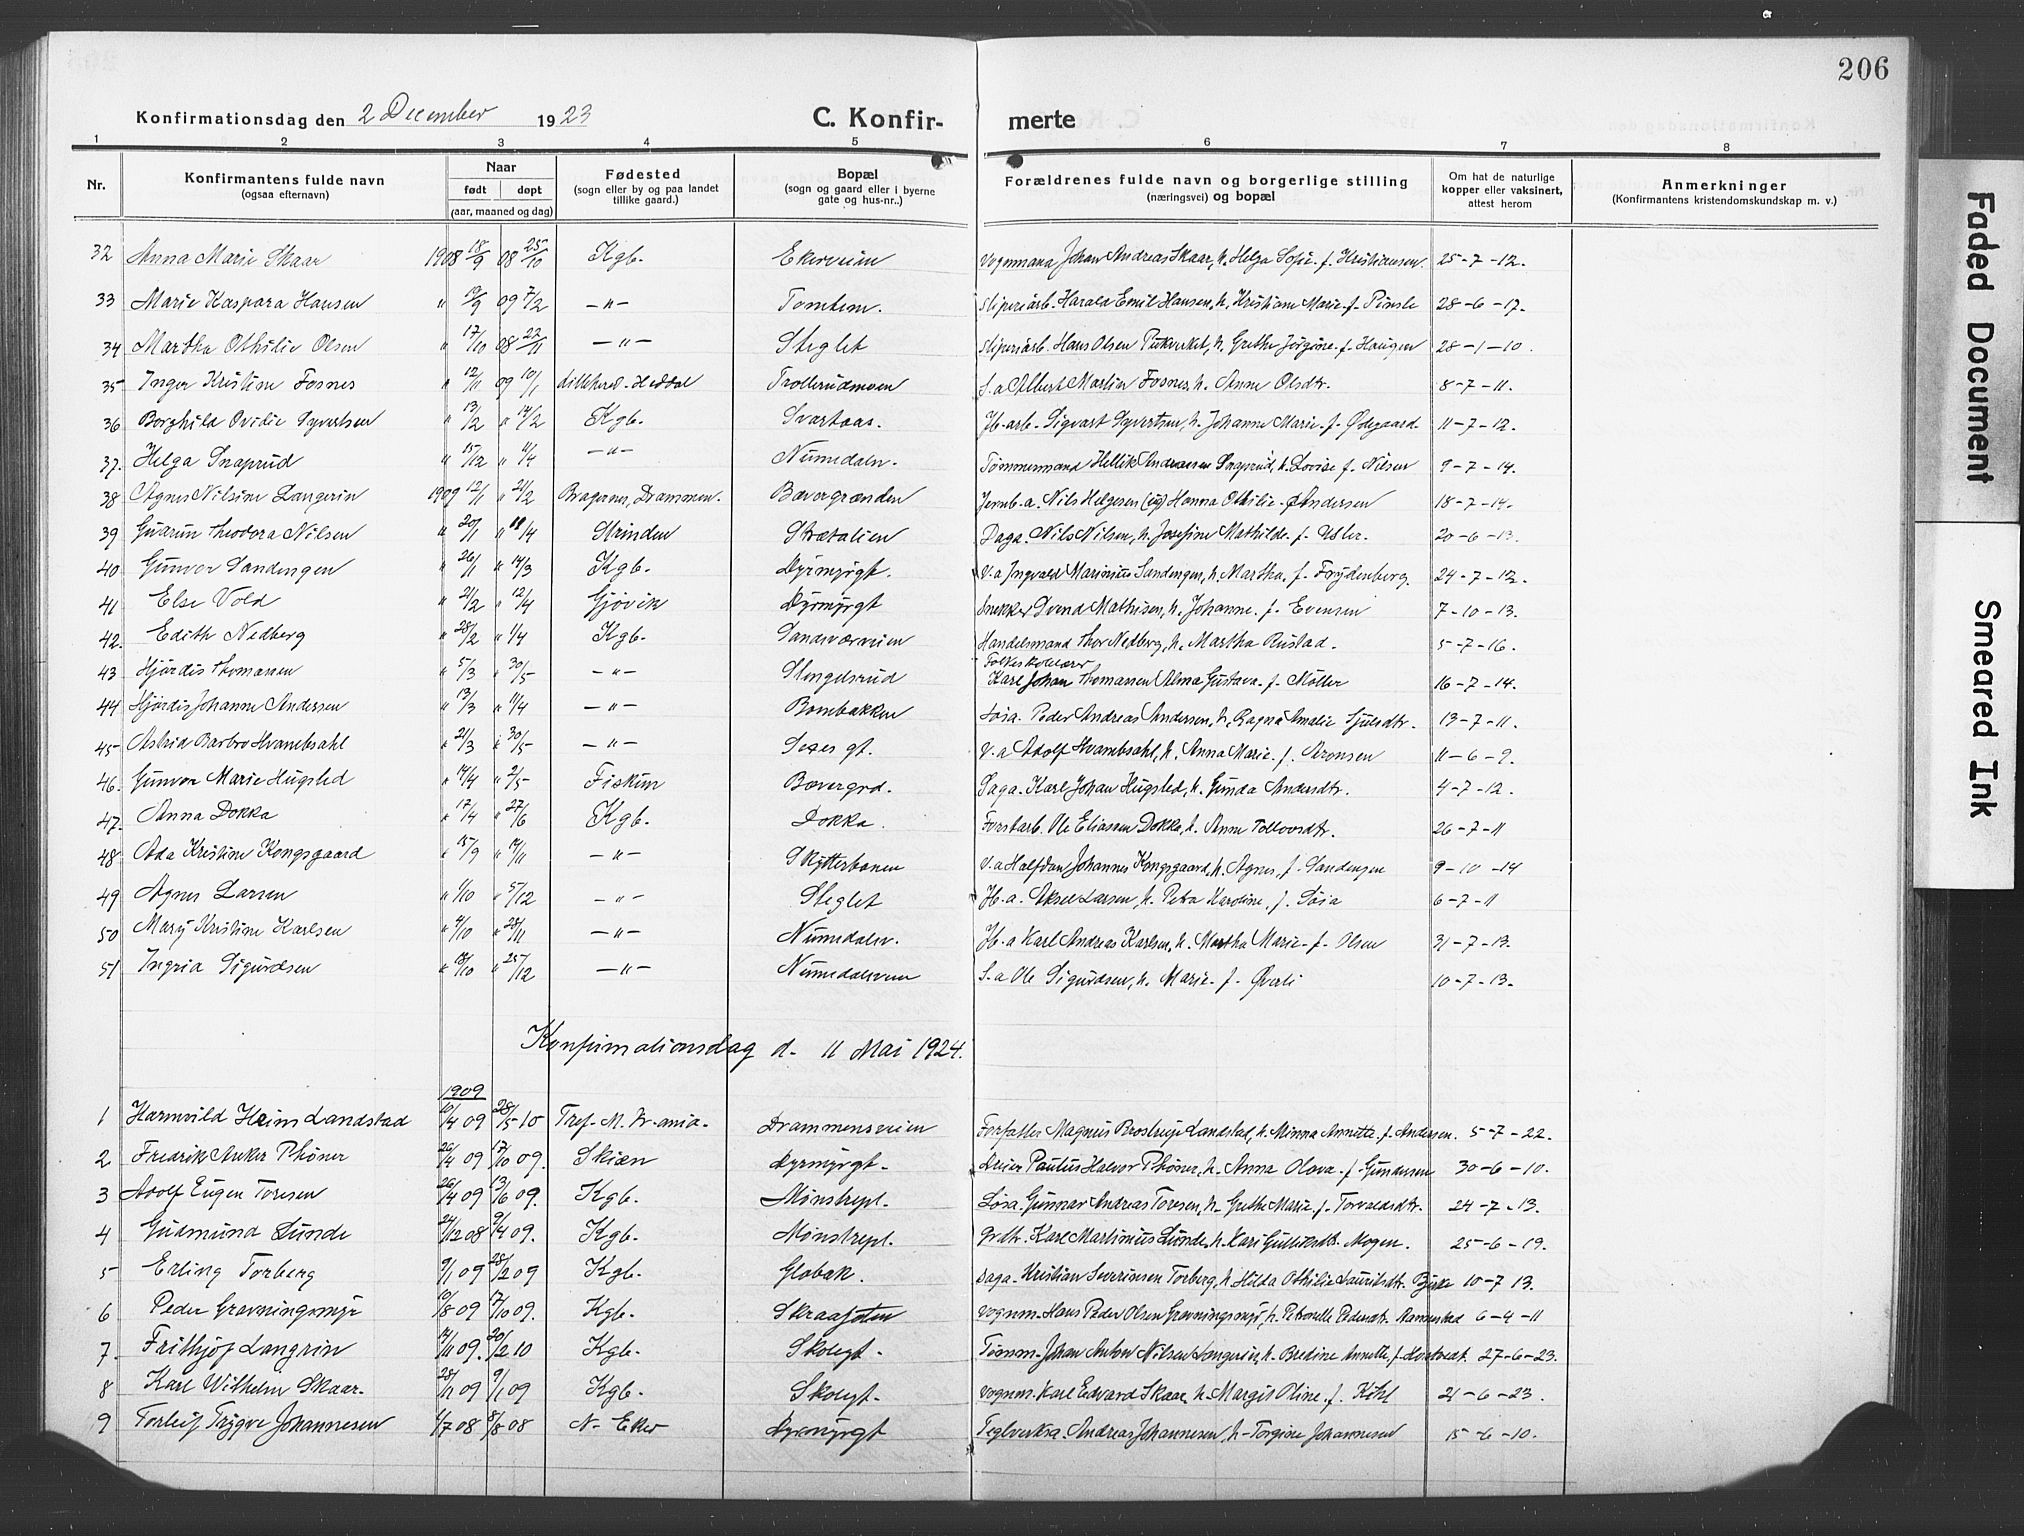 206
Konfirmationsdag den 2 December 1923 C. Konfir- merte
1 2 3 4 5 6 7 8
Nr. Konfirmantens fulde navn (ogsaa efternavn) Naar født døpt (aar, maaned og dag) Fødested (sogn eller by og paa landet tillike gaard.) Bopæl (sogn og gaard eller i byerne gate og hus-nr.) Forældrenes fulde navn og borgerlige stilling (næringsvei) og bopæl Om hat de naturlige kopper eller vaksinert, attest herom Anmerkninger (Konfirmantens kristendomskundskap m. v.)
32 Anna Marie Skaar 1908 18/9 08 25/10 Kgb. Ekerveien Vognmand Johan Andreas Skaar, h. Helga Sofie f. Kristiansen. 25-7-12.
33 Marie Kaspara Hansen " 19/9 09 7/2 -"- Tomtem. Sliperiarb. Harald Emil Hansen, h. Kristiane Marie f. 28-6-17.
34 Martha Othilie Olsen " 17/10 08 22/11 -"- Steglet Sliperiarb. Hans Olsen h. Grethe Jørgine f. Haugen 28-1-10.
35 Inger Kristine Fosnes " 12/11 09 10/1 Heddal Trollerudmoen S.a Albert Martin Fosnes, h. Anne Olsdtr. 8-7-11.
36 Borghild Ovidie Syvertsen " 13/2 " 14/2 Kgb. Svartaas. Jb. arb. Sigvart Syvertsen, h. Johanne Marie f. Ødegaard. 11-7-12.
37. Helga Snaprud " 15/12 " 11/4 -"- Numedalsv. Tømmermand Hellik Andreasen Snaprud, h. Lovise f. Nilsen 9-7-14.
38 Agnes Nilsine Langerin 1909 12/1 " 21/2 Bragernes, Drammen. Bævergrænden Jernb.a. Nils Helgesen (ug) Hanna Othilie f. Andersen 18-7-14.
39 Gudrun Theodora Nilsen " 20/1 " 11/4 Strinden Strætalien Daga. Nils Nilsen, h. Josefine Mathilde f. Asler. 20-6-13.
40 Gunvor Sandengen " 26/1 " 14/3 Kgb. Dyrmyrgt. V.a Ingvald Marinius Sandengen, h. Martha f. Frydenberg. 24-7-12.
41 Else Vold " 21/2 " 12/4 Gjøvik Dyrmyrgt Snekker Svend Mathisen, h. Johanne f. Evensen 7-10-13.
42. Edith Nedberg " 28/2 " 1/4 Kgb. Sandsværveien Handelsmand Thor Nedberg, h. Martha Rustad. 5-7-16.
43 Hjördis Thomassen " 5/3 " 30/5 -"- Stengelsrud Folkeskolelærer Karl Johan Thomassen Alma Gustava f. Møller 16-7-14.
44 Hjördis Johanne Andersen " 13/3 " 11/4 -"- Bombakken Løsa. Peder Andreas Andersen, h. Ragna Amalie Sjulsdtr. 13-7-11.
45 Astrid Barbro Hvambsahl " 21/3 " 30/5 -"- Seses gt. V.a Adolf Hvambsahl, h. Anna Marie f. Aronsen 11-6-9.
46. Gunvor Marie Hugsted " 14/4 " 2/5 Fiskum Bævergrd. Saga. Karl Johan Hugsted, h. Gunda Andersdtr. 4-7-12.
47. Anna Dokka " 17/4 " 27/6 Kgb. Dokka. Forstarb. Ole Eliassen Dokka, h. Anne Tollovsdtr. 26-7-11
48 Ada Kristine Kongsgaard " 15/9 " 14/11 -"- Skytterbanen V.a Halfdan Johannes Kongsgaard, h. Agnes f. Sandengen 9-10-14
49 Agnes Larsen " 1/10 " 5/12 -"- Steglet Jb.a. Aksel Larsen, h. Petra Karoline f. 6-7-11
50 Mary Kristine Karlsen " 4/10 " 28/11 -"- Numedalsv. Jb.a Karl Andreas Karlsen, h. Martha Marie f. Olsen 31-7-13.
51 Ingrid Sigurdsen " 18/10 " 25/12 -"- Numedalsveien S.a Ole Sigurdsen, h. Marie f. Øverli 10-7-13.
Konfirmationsdag d. 11 Mai 1924.
1909
1 Harmvild Heim Landstad 10/4 09 28/5 10 Tref. M. Kr.ania. Drammensveien Forfatter Magnus Brostrup Landstad, h. Minna Annette f. Andersen. 5-7-22.
2 Fredrik Anker Thöner 26/4 09 17/10 09. Skien Dyrmyrgt. Dreier Paulus Halvor Thöner, h. Anna Olava f. Gundersen 30-6-10.
3 Adolf Eugen Toresen 26/4 09 13/6 09. Kgb. Mønstrepl. Løsa. Gunnar Andreas Toresen, h. Grethe Marie f. Torvaldsdtr. 24-7-13.
4 Gudmund Lunde 27/12 08 9/4 09. Kgb. Mønstrepl. Karl Martinius Lunde, h. Kari Gulliksdtr. Mogen. 25-6-19.
5 Erling Torberg 9/1 09 28/2 09 Kgb. Glabak. Saga. Kristian Severinsen Torberg, h. Hilda Othilie Lauritsdtr. Bjerke 10-7 13.
6 Peder Gravningsmyr 10/8 09 17/10 09. Kgb. Skraafoten Vognm. Hans Peder Olsen Gravningsmyr, h. Petronelle Pedersdtr. Rannestad 6-4-11
7. Frithjof Langrin 14/11 09. 20/2 10 Kgb. Skolegt. Tømm. Johan Anton Nilsen Langerin, h. Bredine Annette f. Hostvedt. 27-6-23.
8 Karl Wilhelm Skaar. 28/11 09 9/1 09 Kgb. Skolegt. Vognm. Karl Edvard Skaar, h. Margit Oline f. Kihl 21-6-23.
9 Torleif Trygve Johannesen 1/7 08 8/8 08 N. Eker Dyrmyrgt Teglverksa. Andreas Johannesen, h. Torgine Johannesen 15-6-10.
Faded Document
Smeared Ink